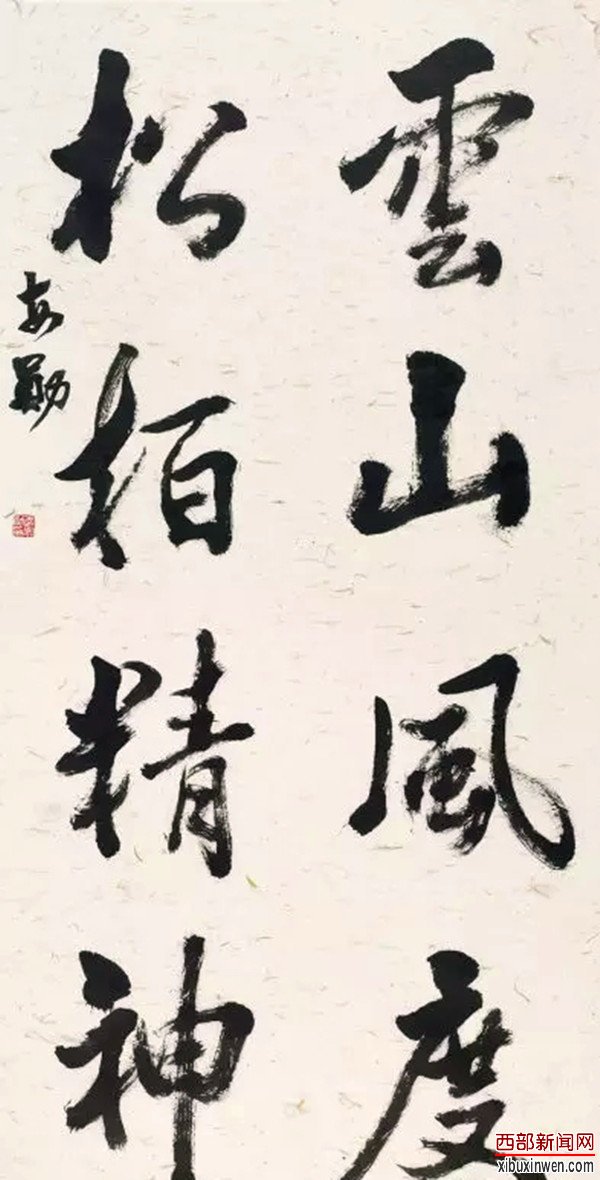 雲山風度
松栢精神
西部新闻网
xibuxinwen.com